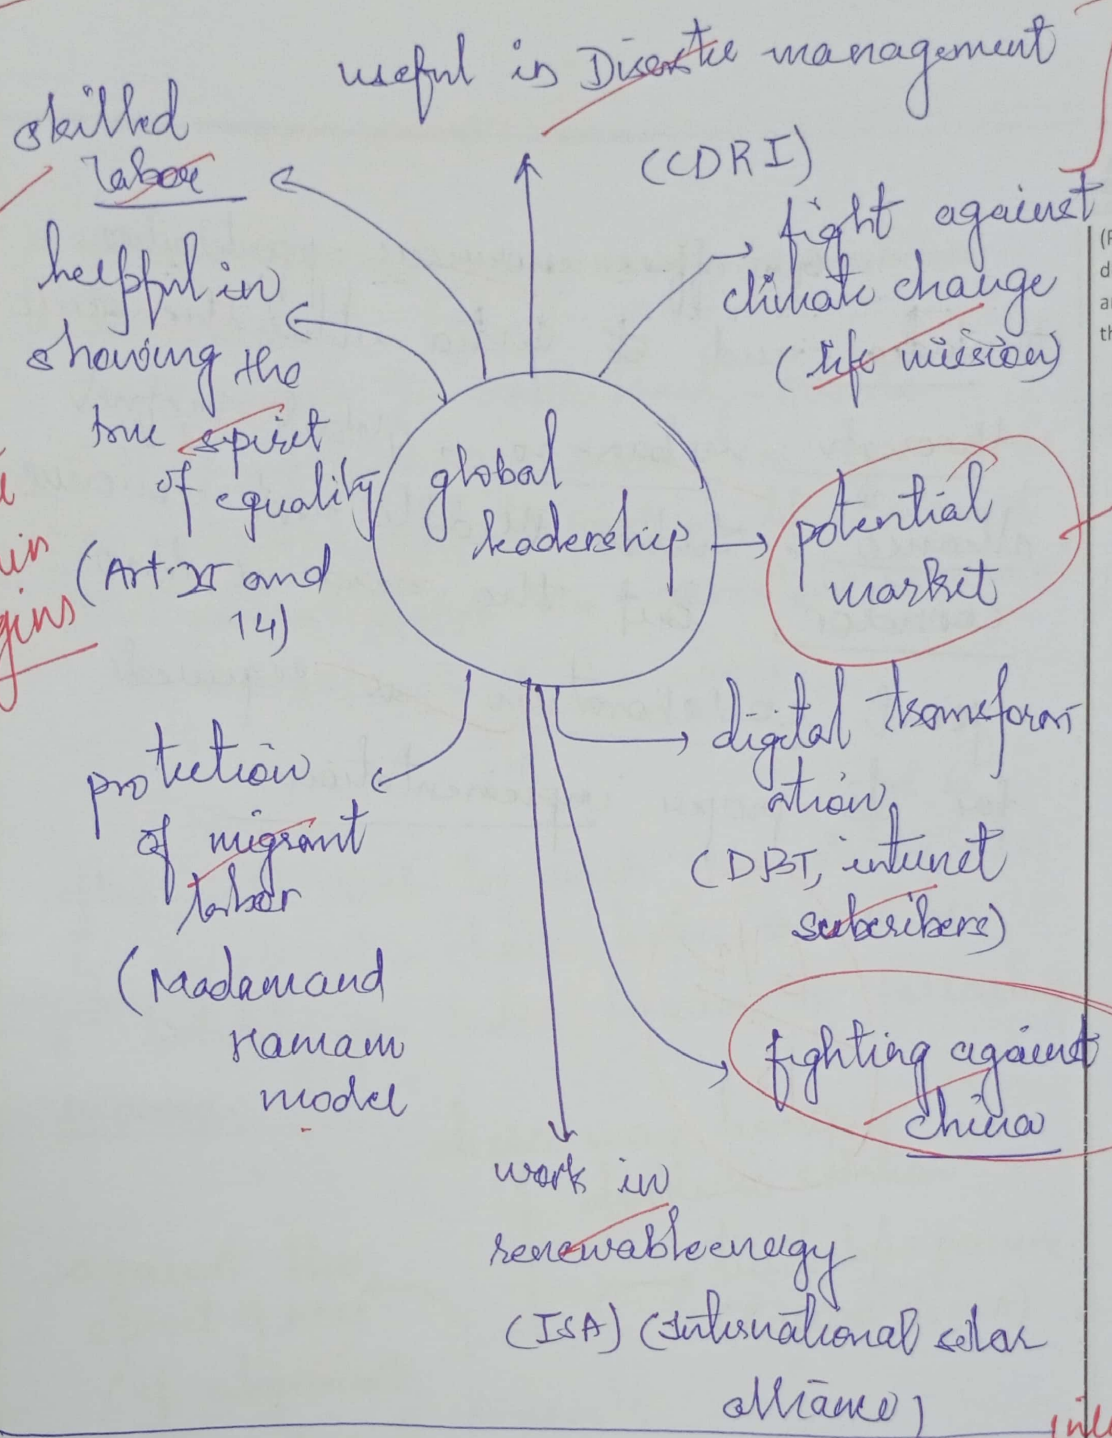 useful in Disaster management
(CDRI)
skilled
labor
helpful in
showing the
true spirit
of equality
(Art.25 and
14)
fight against
climate change
(life mission)
global
leadership
potential
market
digital transform
ation
(DBT, internet
subcribers)
protection
of migrant
labor
(Madam and
Hamam
model
fighting against
china
work in
renewable energy
(ISA) (International solar
alliance)
in
gins